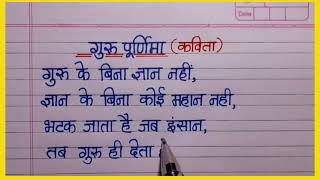 Date
गुरु पूर्णिमा (कविता)
गुरु के बिना ज्ञान नहीं,
ज्ञान के बिना कोई महान नही,
भटक जाता है जब इंसान,
तब गुरु ही देता